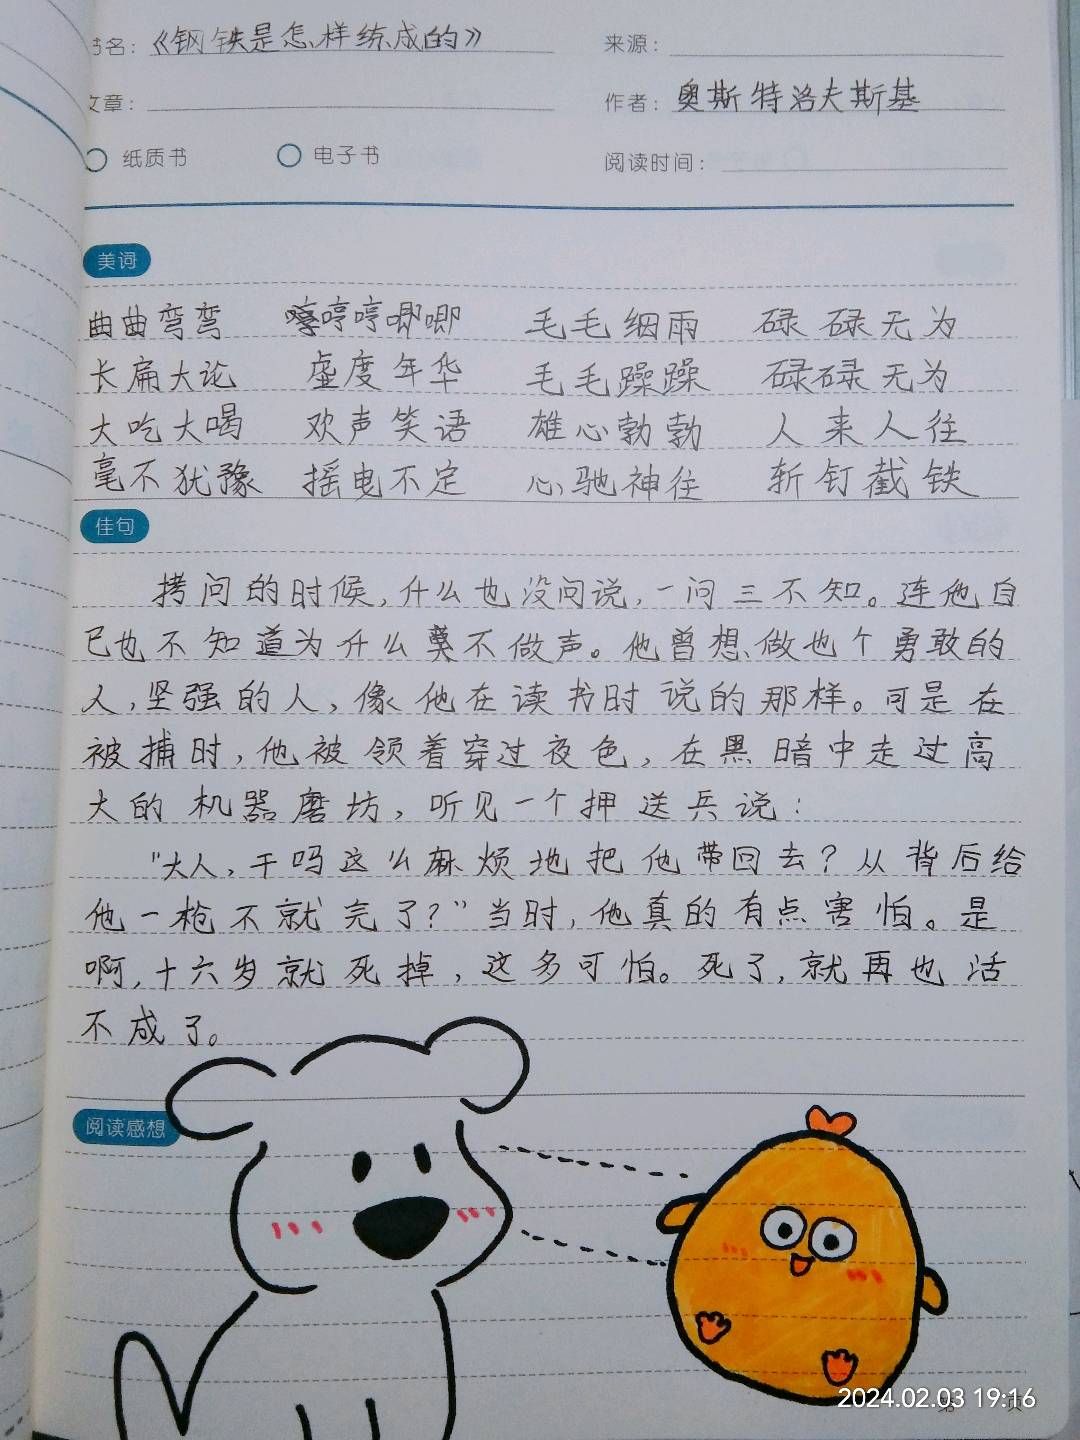 书名：《钢铁是怎样练成的》 来源：
文章： 作者：奥斯特洛夫斯基
纸质书 电子书 阅读时间：
美词
曲曲弯弯 哼哼唧唧 毛毛细雨 碌碌无为
长扁大论 虚度年华 毛毛躁躁 碌碌无为
大吃大喝 欢声笑语 雄心勃勃 人来人往
毫不犹豫 摇电不定 心驰神往 斩钉截铁
佳句
拷问的时候，什么也没问说，一问三不知。连他自
已也不知道为什么不做声。他曾想做也个勇敢的
人，坚强的人，像他在读书时说的那样。可是在
被捕时，他被领着穿过夜色，在黑暗中走过高
大的机器磨坊，听见一个押送兵说：
"大人，干吗这么麻烦地把他带回去？从背后给
他一枪不就完了？"当时，他真的有点害怕。是
啊，十六岁就死掉，这多可怕。死了，就再也活
不成了。
阅读感想
2024.02.03 19:16
第 页